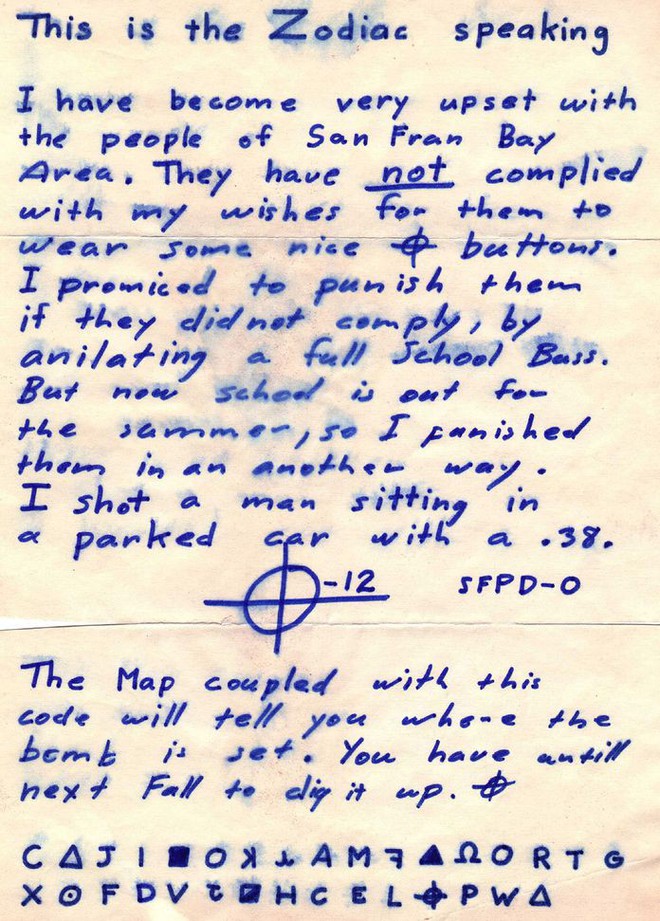 This is the Zodiac speaking
I have become very upset with
the people of San Fran Bay
Area. They have not complied
with my wishes for them to
wear some nice ⌖ buttons.
I promiced to punish them
if they did not comply, by
anilating a full School Buss.
But now school is out for
the summer, so I punished
them in an another way.
I shot a man sitting in
a parked car with a .38.
⌖-12 SFPD-0
The Map coupled with this
code will tell you where the
bomb is set. You have untill
next Fall to dig it up. ⌖
C △ J I ■ O ꓘ ⅄ A M ꟻ ▲ Ω O R T G
X ⊙ F D V ⴠ ◪ H C E L ⌖ P W △